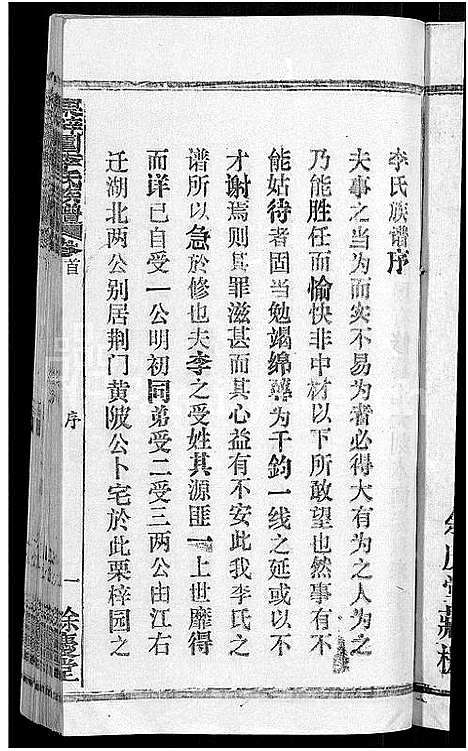 李氏族谱序
夫事之当为而实不易为者必得大有为之人为之
乃能胜任而愉快非中材以下所敢望也然事有不
能姑待者固当勉竭绵薄为千钧一线之延或以不
才谢焉则其罪滋甚而其心益有不安此我李氏之
谱所以急於修也夫李之受姓其源匪一上世靡得
而详已自受一公明初同弟受二受三两公由江右
迁湖北两公别居荆门黄陂公卜宅於此栗梓园之
李氏宗谱
卷首
序
一
余庆堂